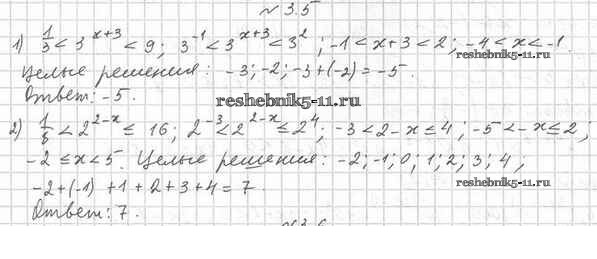 № 3.5
1) 1/3 < 3^{x+3} < 9; 3^{-1} < 3^{x+3} < 3^2; -1 < x+3 < 2; -4 < x < -1.
Целые решения: -3; -2; -3+(-2) = -5.
Ответ: -5.
reshebnik5-11.ru
reshebnik5-11.ru
2) 1/8 < 2^{2-x} ≤ 16; 2^{-3} < 2^{2-x} ≤ 2^4; -3 < 2-x ≤ 4; -5 < -x ≤ 2;
-2 ≤ x < 5. Целые решения: -2; -1; 0; 1; 2; 3; 4,
-2+(-1) +1+2+3+4 = 7
reshebnik5-11.ru
Ответ: 7.